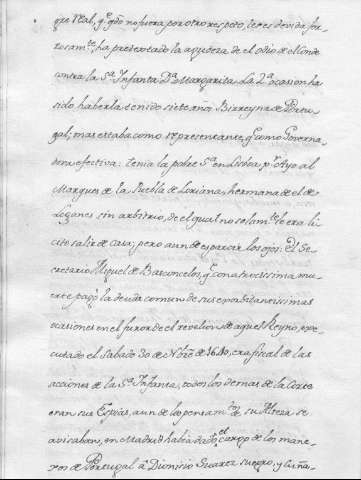 gre Real, q̃ qdo no fuera por otro respeto, le es devida for-
zosam.te, ha presentado la agudeza de el odio de el Conde
contra la S.ra Infanta D.a Margarita. La 2.a ocasion ha
sido haberla tenido siete años Birreyna de Portu-
gal, mas estaba como representante, q̃ como Governa-
dora efectiva: tenia la pobre S.ra en Lisboa p.r Ayo al
Marques de la Puebla de Loriana, hermano de el de
Leganes sin arbitrio, de el qual no solam.te le era li
cito salir de casa; pero aun de esparcir los ojos. El Se-
cretario Miguel de Basconcelos, q̃ con atrocissima mu-
erte pagò la deuda comun de sus exorbitantissimas
ocasiones en el furor de el revelion de aquel Reyno, exe-
cutado el Sabado 30 de Nbre de 1640, era fiscal de las
acciones de la S.ra Infanta, todos los demas de la Corte
eran sus Espias, aun de los pensam.tos de su Alteza se
avisaban, en Madrid habia dado el cargo de los mane-
xos de Portugal à Dionisio Suarez suegro, y Cuña-